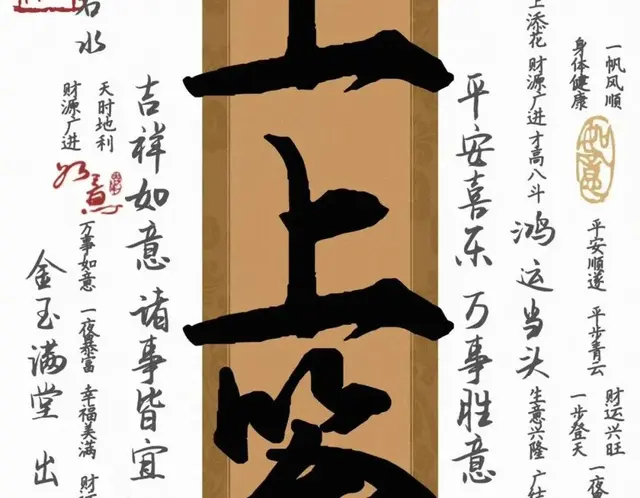 一帆风顺
身体健康
如意
平安顺遂 平步青云
财运兴旺
一步登天 一夜
上添花 财源广进 才高八斗
鸿运当头
生意兴隆 广结
平安喜乐 万事胜意
上上签
吉祥如意 诸事皆宜
天时地利
财源广进
如意
万事如意 一夜暴富 幸福美满 财源
若水
金玉满堂 出